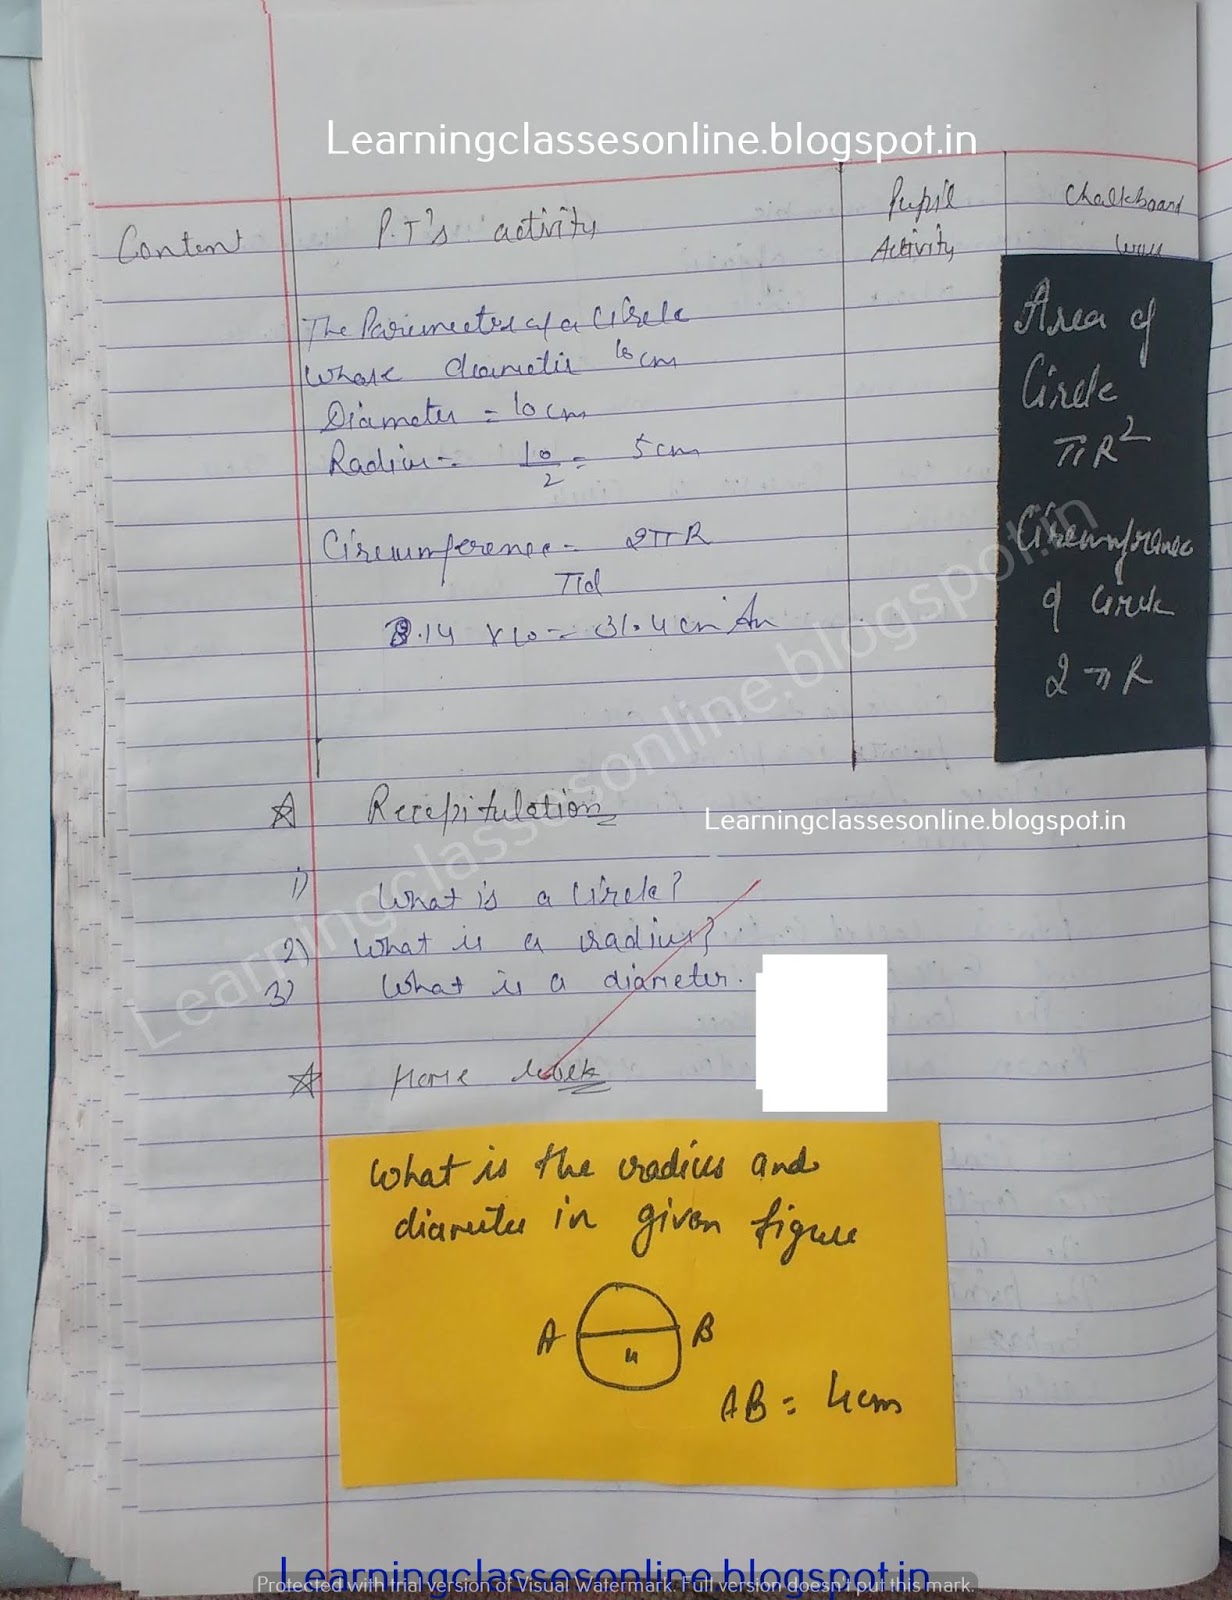 Learningclassesonline.blogspot.in
Content
P.T's activity
Pupil
Activity
Chalkboard
The Parimeter of a Circle
whose diameter 10 cm
Diameter = 10 cm
Radius = 10/2 = 5 cm
Circumference = 2πR
πd
3.14 x 10 = 31.4 cm An
Area of
Circle
πR²
Circumference
of Circle
2πR
Recepitulation
Learningclassesonline.blogspot.in
1) What is a Circle?
2) What is a radius?
3) What is a diameter.
Learningclassesonline.blogspot.in
Home Work
What is the radius and
diameter in given figure
A B
4
AB = 4cm
Learningclassesonline.blogspot.in
Protected with trial version of Visual Watermark. Full version doesn't put this mark.